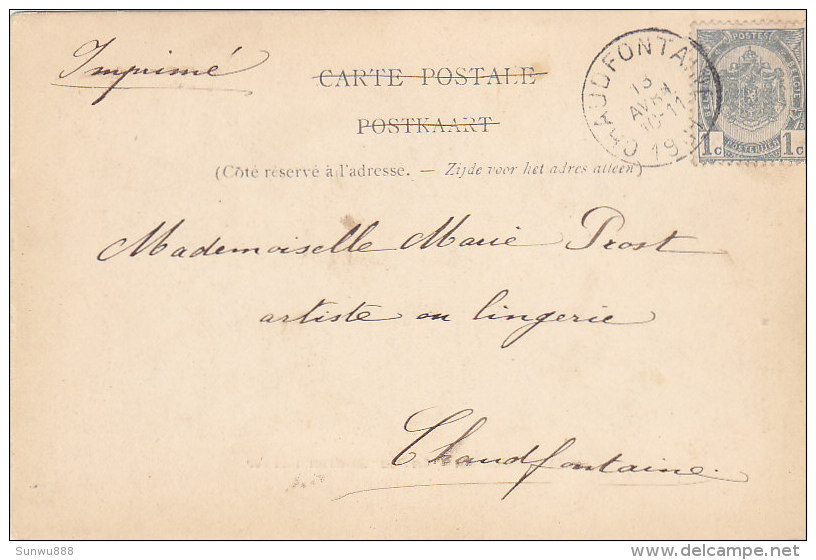 Imprimé
CARTE POSTALE
POSTKAART
(Côté réservé à l'adresse. — Zijde voor het adres alleen)
CHAUDFONTAINE
13
AVRIL
10-11
POSTES
BELGIE
1c 1c
Mademoiselle Marie Prost
artiste en lingerie
Chaudfontaine.
Sunwu888
delcampe.net